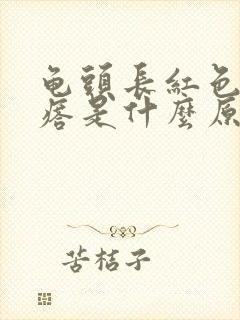 龟頭長紅色
痞是什麼原
苦桔子